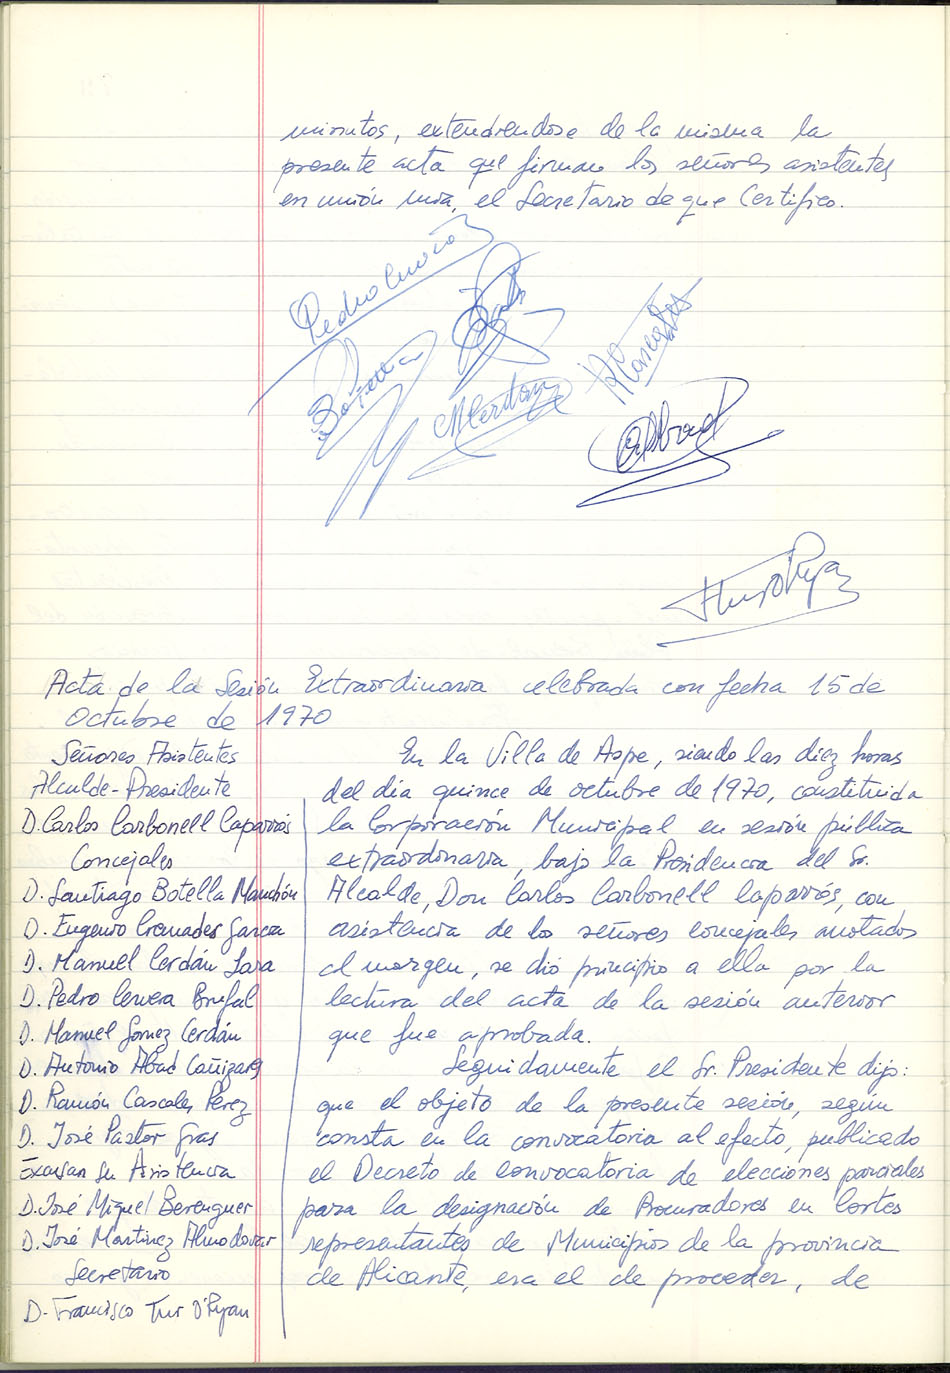 minutos, extendiendose de la misma la
presente acta que firman los señores asistentes
en unión mia, el Secretario de que Certifico.
Pedro
Botella
Abad
Acta de la Sesión Extraordinaria celebrada con fecha 15 de
Octubre de 1970
Señores Asistentes
Alcalde-Presidente
D. Carlos Carbonell Caparrós
Concejales
D. Santiago Botella Manchón
D. Eugenio Cremades Garcia
D. Manuel Cerdán Jara
D. Pedro Cervera Brufal
D. Manuel Gomez Cerdán
D. Antonio Abad Cañizares
D. Ramón Cascales Pérez
D. José Pastor Gras
Excusan su Asistencia
D. José Miguel Berenguer
D. José Martinez Almodovar
Secretario
D. Francisco Tur O'Ryan
En la Villa de Aspe, siendo las diez horas
del dia quince de octubre de 1970, constituida
la Corporación Municipal en sesión pública
extraordinaria, bajo la Presidencia del Sr.
Alcalde, Don Carlos Carbonell Caparrós, con
asistencia de los señores concejales anotados
al margen, se dió principio a ella por la
lectura del acta de la sesión anterior
que fue aprobada.
Seguidamente el Sr. Presidente dijo:
que el objeto de la presente sesión, según
consta en la convocatoria al efecto, publicado
el Decreto de convocatoria de elecciones parciales
para la designación de Procuradores en Cortes
representantes de Municipios de la provincia
de Alicante, era el de proceder, de